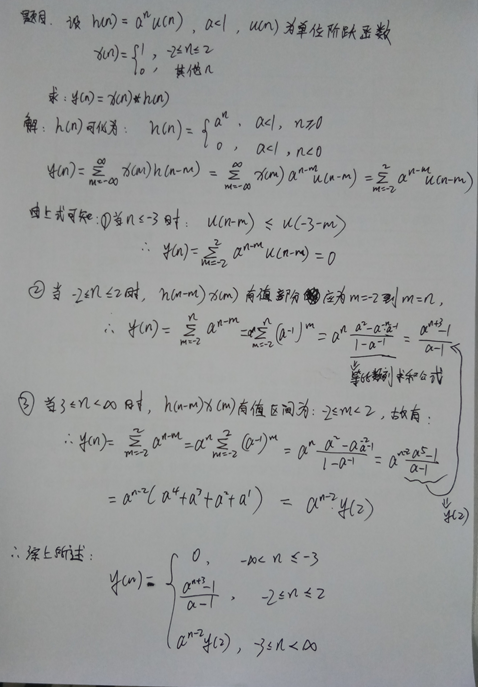 题目: 设 h(n) = aⁿu(n), a<1, u(n)为单位阶跃函数
x(n) = { 1, -2≤n≤2
0, 其他n
求: y(n) = x(n) * h(n)
解: h(n)可化为: h(n) = { aⁿ, a<1, n≥0
0, a<1, n<0
y(n) = Σ_{m=-∞}^{∞} x(m) h(n-m) = Σ_{m=-∞}^{∞} x(m) a^{n-m} u(n-m) = Σ_{m=-2}^{2} a^{n-m} u(n-m)
由上式可知: ①当 n≤-3时: u(n-m) ≤ u(-3-m)
∴ y(n) = Σ_{m=-2}^{2} a^{n-m} u(n-m) = 0
② 当 -2≤n≤2时, h(n-m) x(m) 有值部分应为 m=-2到 m=n,
∴ y(n) = Σ_{m=-2}^{n} a^{n-m} = aⁿ Σ_{m=-2}^{n} (a⁻¹)^m = aⁿ (a² - a⁻ⁿa⁻¹)/(1-a⁻¹) = (a^{n+3}-1)/(a-1)
等比数列求和公式
③ 当 3≤n<∞时, h(n-m) x(m) 有值区间为: -2≤m<2, 故有:
∴ y(n) = Σ_{m=-2}^{2} a^{n-m} = aⁿ Σ_{m=-2}^{2} (a⁻¹)^m = aⁿ (a² - a⁻²a⁻¹)/(1-a⁻¹) = a^{n-2} (a⁵-1)/(a-1)
= a^{n-2} (a⁴+a³+a²+a¹) = a^{n-2} y(2)
y(2)
∴ 综上所述:
y(n) = { 0, -∞<n≤-3
(a^{n+3}-1)/(a-1), -2≤n≤2
a^{n-2} y(2), -3≤n<∞